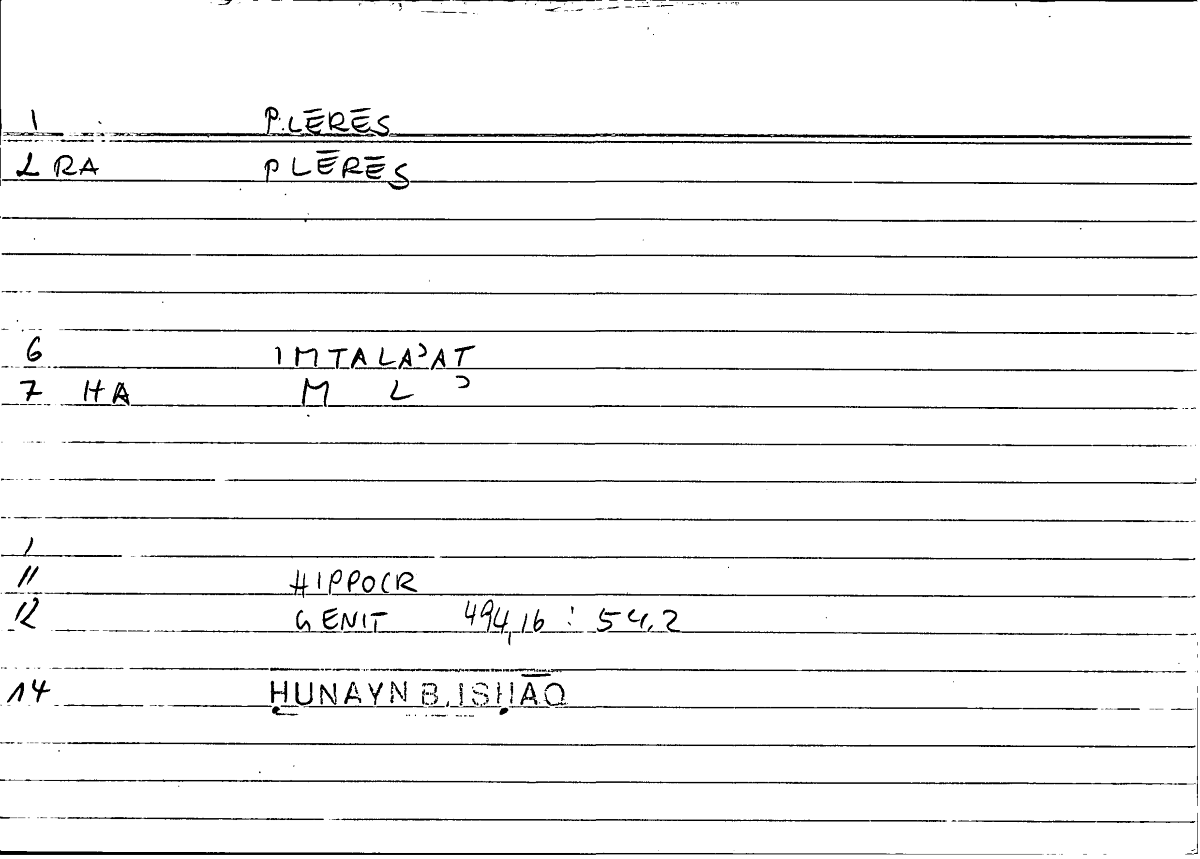 1 PLĒRĒS
2 RA PLĒRĒS
6 IMTALAʾAT
7 HA M L ʾ
11 HIPPOCR
12 GENIT 494,16 : 54,2
14 ḤUNAYN B. ISḤĀQ